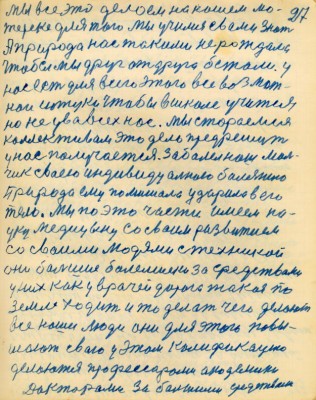 217
мы все это делаем на нашем мо-
тереке для того мы училися с вами знать
А природа нас такими не рождала
чтобы мы друг от друга отстали. у
нас есть для всего этого все воз мож-
наи штуки чтобы в школе учится
но не ува всех нос. мы стараемся
коллективам это дело предрешит
у нас получается. Забалел наш маль-
чик своего индивиду алного балятко
природа ему помишала ударила в его
тело. Мы по это части имеем на-
уку медицыну со своим развитием
со своими людями с техникой
они балшие балешыи за средствами
у них как у врачей дорога такая по
земле ходит и то делат чего делают
все наши люди они для этого повы-
шают сваго у этом калификацыю
делаются профессарами академики
Дакторами за балшими средствами